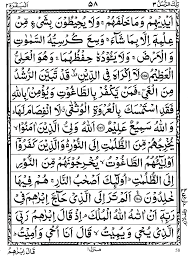 ٥٨
اَيْدِيْهِمْ وَمَا خَلْفَهُمْ ۚ وَلَا يُحِيْطُوْنَ بِشَيْءٍ مِّنْ
عِلْمِهٖٓ اِلَّا بِمَا شَآءَ ۚ وَسِعَ كُرْسِيُّهُ السَّمٰوٰتِ
وَالْاَرْضَ ۚ وَلَا يَـُٔوْدُهٗ حِفْظُهُمَا ۚ وَهُوَ الْعَلِيُّ
الْعَظِيْمُ لَآ اِكْرَاهَ فِي الدِّيْنِ ۙ قَدْ تَّبَيَّنَ الرُّشْدُ
مِنَ الْغَيِّ ۚ فَمَنْ يَّكْفُرْ بِالطَّاغُوْتِ وَيُؤْمِنْ بِاللّٰهِ
فَقَدِ اسْتَمْسَكَ بِالْعُرْوَةِ الْوُثْقٰى ۗ لَا انْفِصَامَ لَهَا
وَاللّٰهُ سَمِيْعٌ عَلِيْمٌ اَللّٰهُ وَلِيُّ الَّذِيْنَ اٰمَنُوْا
يُخْرِجُهُمْ مِّنَ الظُّلُمٰتِ اِلَى النُّوْرِ ۗ وَالَّذِيْنَ كَفَرُوْٓا
اَوْلِيٰٓـُٔهُمُ الطَّاغُوْتُ ۙ يُخْرِجُوْنَهُمْ مِّنَ النُّوْرِ
اِلَى الظُّلُمٰتِ ۗ اُولٰٓئِكَ اَصْحٰبُ النَّارِ ۚ هُمْ فِيْهَا
خٰلِدُوْنَ اَلَمْ تَرَ اِلَى الَّذِيْ حَآجَّ اِبْرٰهٖمَ فِيْ
رَبِّهٖٓ اَنْ اٰتٰىهُ اللّٰهُ الْمُلْكَ ۘ اِذْ قَالَ اِبْرٰهٖمُ رَبِّيَ
الَّذِيْ يُحْيٖ وَيُمِيْتُ ۙ قَالَ اَنَا اُحْيٖ وَاُمِيْتُ
قَالَ اِبْرٰهٖمُ